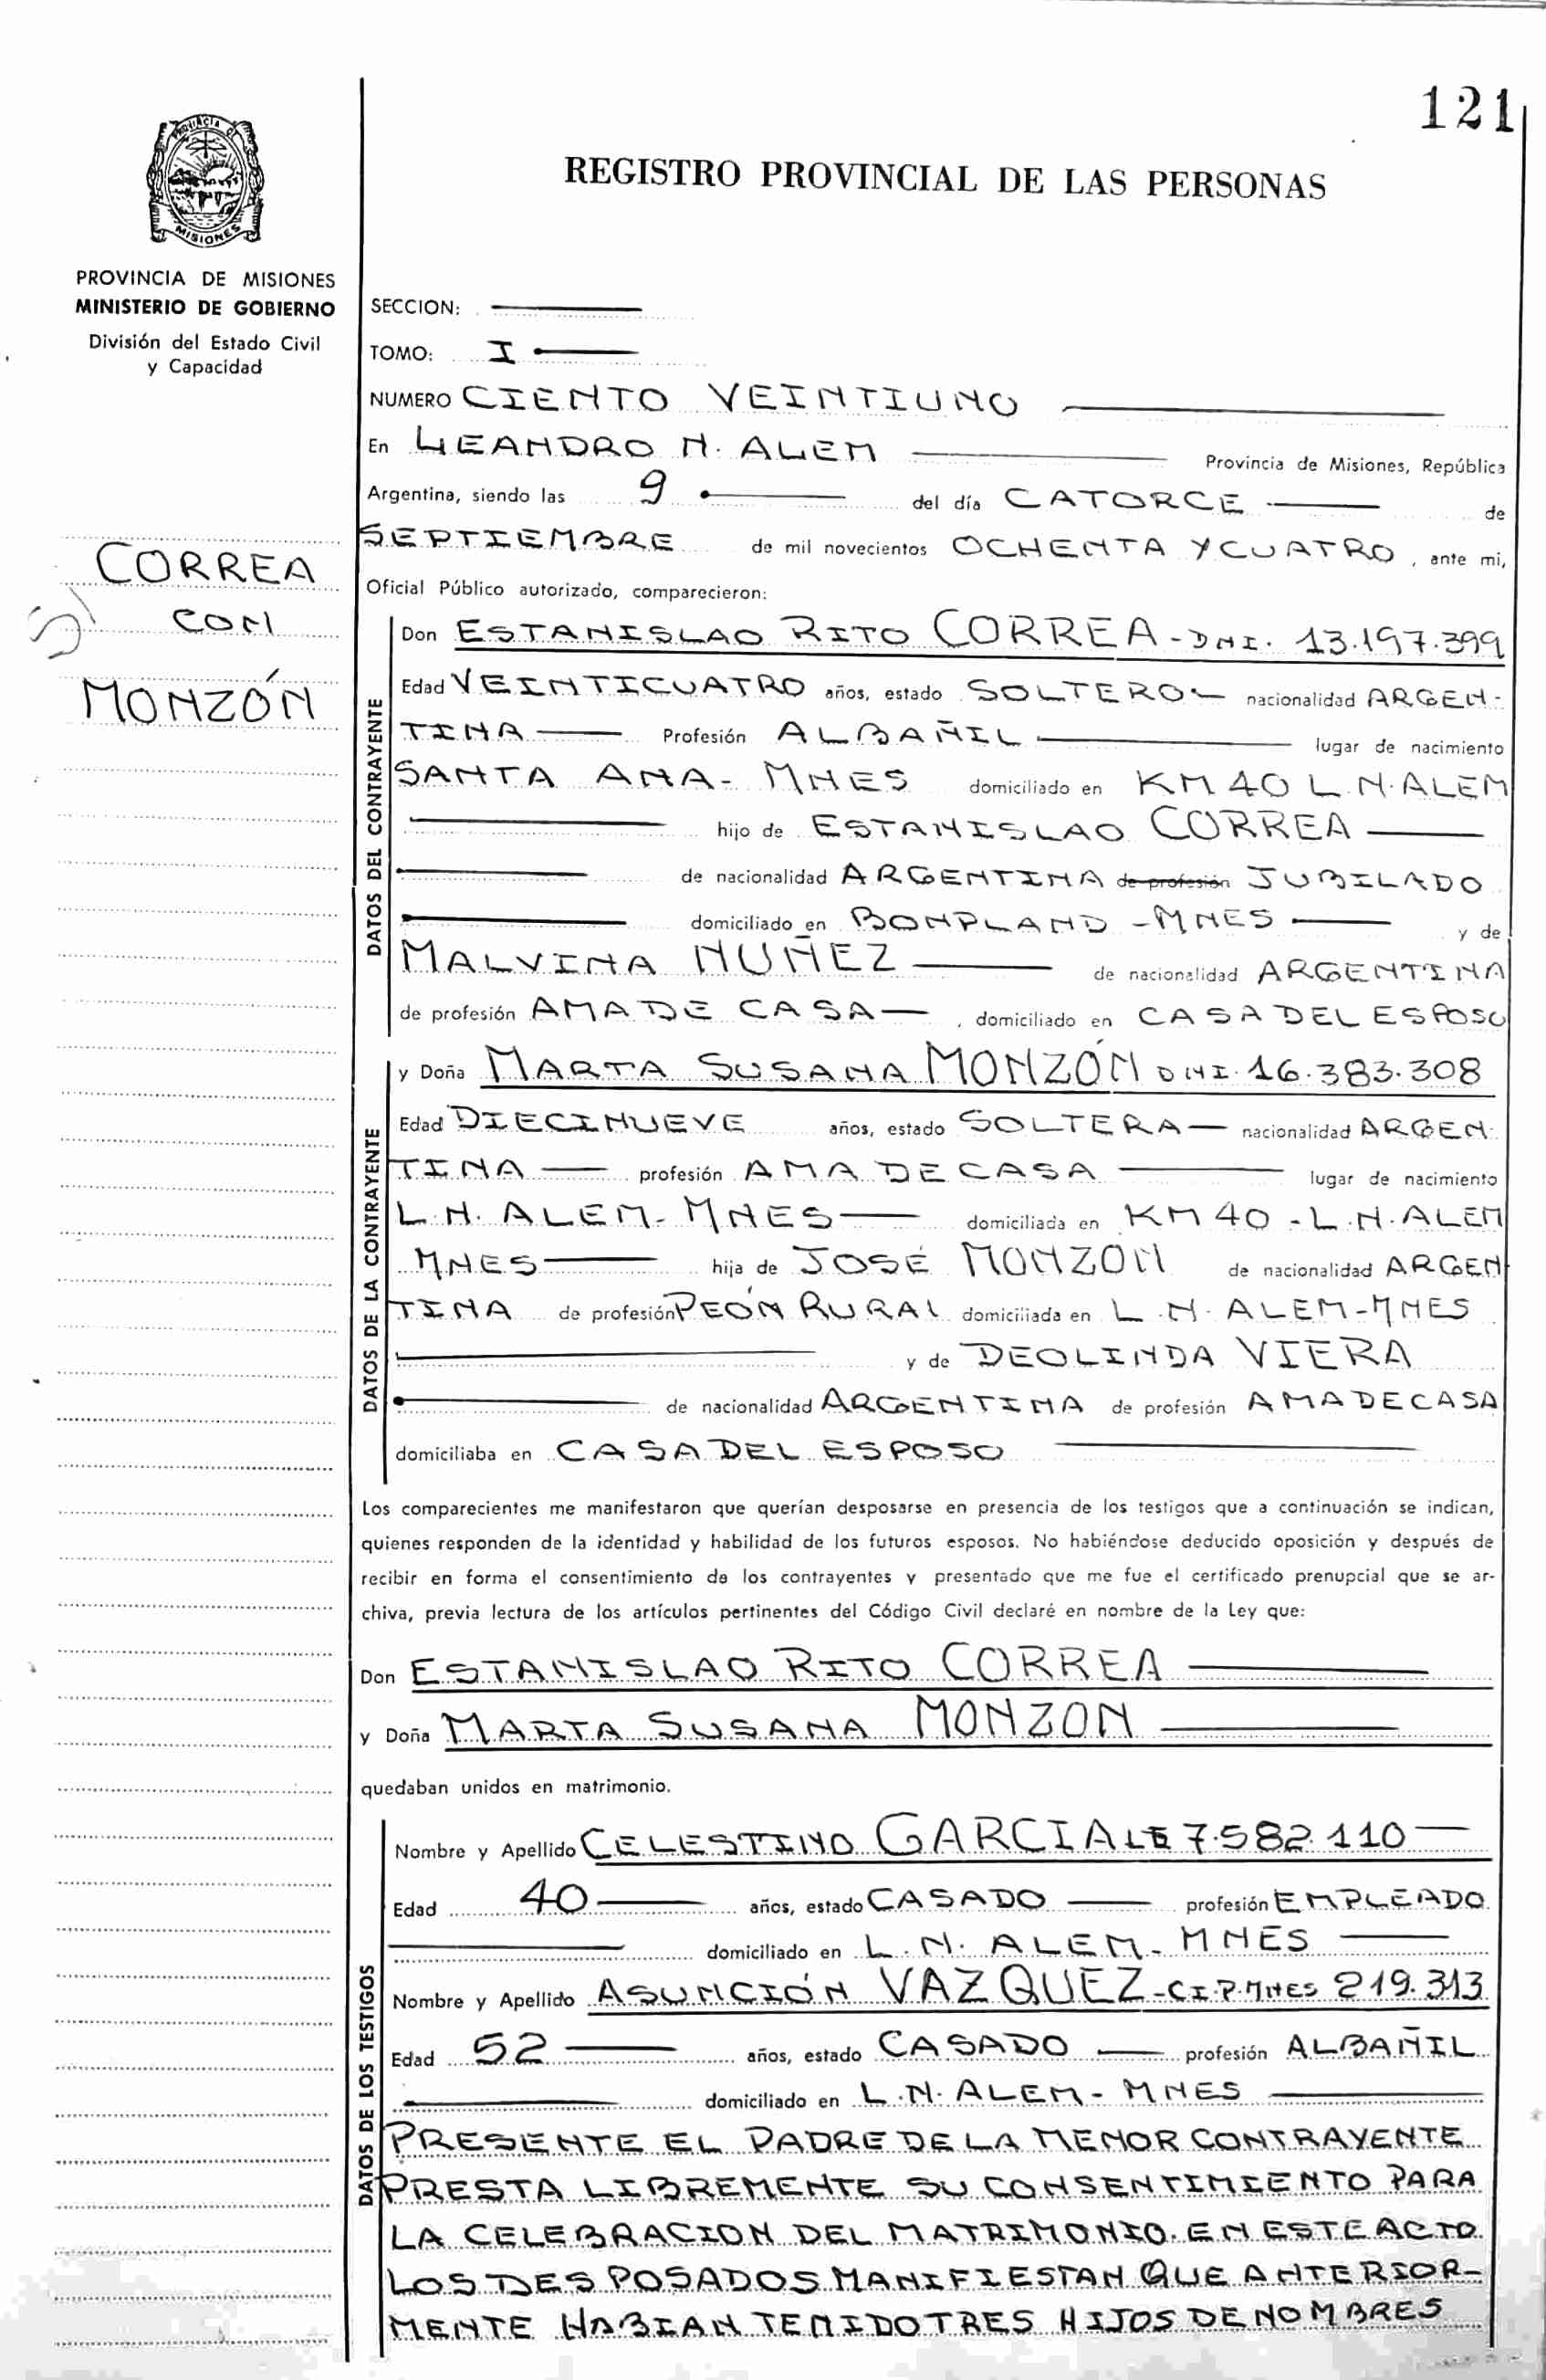 121
PROVINCIA DE
MISIONES
REGISTRO PROVINCIAL DE LAS PERSONAS
PROVINCIA DE MISIONES
MINISTERIO DE GOBIERNO
División del Estado Civil
y Capacidad
SECCION:
TOMO: I
NUMERO CIENTO VEINTIUNO
En LEANDRO N. ALEM Provincia de Misiones, República
Argentina, siendo las 9 del día CATORCE de
SEPTIEMBRE de mil novecientos OCHENTA Y CUATRO, ante mi,
Oficial Público autorizado, comparecieron:
CORREA
CON
MONZÓN
DATOS DEL CONTRAYENTE
Don ESTANISLAO RITO CORREA - DNI. 13.197.399
Edad VEINTICUATRO años, estado SOLTERO nacionalidad ARGEN-
TINA Profesión ALBAÑIL lugar de nacimiento
SANTA ANA - MNES domiciliado en KM 40 L.N.ALEM
hijo de ESTANISLAO CORREA
de nacionalidad ARGENTINA de profesión JUBILADO
domiciliado en BONPLAND - MNES y de
MALVINA NUÑEZ de nacionalidad ARGENTINA
de profesión AMA DE CASA, domiciliado en CASA DEL ESPOSO
DATOS DE LA CONTRAYENTE
y Doña MARTA SUSANA MONZÓN DNI. 16.383.308
Edad DIECINUEVE años, estado SOLTERA nacionalidad ARGEN-
TINA profesión AMA DE CASA lugar de nacimiento
L.N. ALEM - MNES domiciliada en KM 40 - L.N.ALEM
MNES hija de JOSÉ MONZON de nacionalidad ARGEN
TINA de profesión PEÓN RURAL domiciliada en L.N. ALEM - MNES
y de DEOLINDA VIERA
de nacionalidad ARGENTINA de profesión AMA DE CASA
domiciliaba en CASA DEL ESPOSO
Los comparecientes me manifestaron que querían desposarse en presencia de los testigos que a continuación se indican,
quienes responden de la identidad y habilidad de los futuros esposos. No habiéndose deducido oposición y después de
recibir en forma el consentimiento de los contrayentes y presentado que me fue el certificado prenupcial que se ar-
chiva, previa lectura de los artículos pertinentes del Código Civil declaré en nombre de la Ley que:
Don ESTANISLAO RITO CORREA
y Doña MARTA SUSANA MONZON
quedaban unidos en matrimonio.
DATOS DE LOS TESTIGOS
Nombre y Apellido CELESTINO GARCIA LE 7.582.110
Edad 40 años, estado CASADO profesión EMPLEADO
domiciliado en L.N. ALEM - MNES
Nombre y Apellido ASUNCIÓN VAZQUEZ - CI.P.MNES 219.313
Edad 52 años, estado CASADO profesión ALBAÑIL
domiciliado en L.N. ALEM - MNES
PRESENTE EL PADRE DE LA MENOR CONTRAYENTE
PRESTA LIBREMENTE SU CONSENTIMIENTO PARA
LA CELEBRACION DEL MATRIMONIO. EN ESTE ACTO
LOS DESPOSADOS MANIFIESTAN QUE ANTERIOR-
MENTE HABIAN TENIDO TRES HIJOS DE NOMBRES